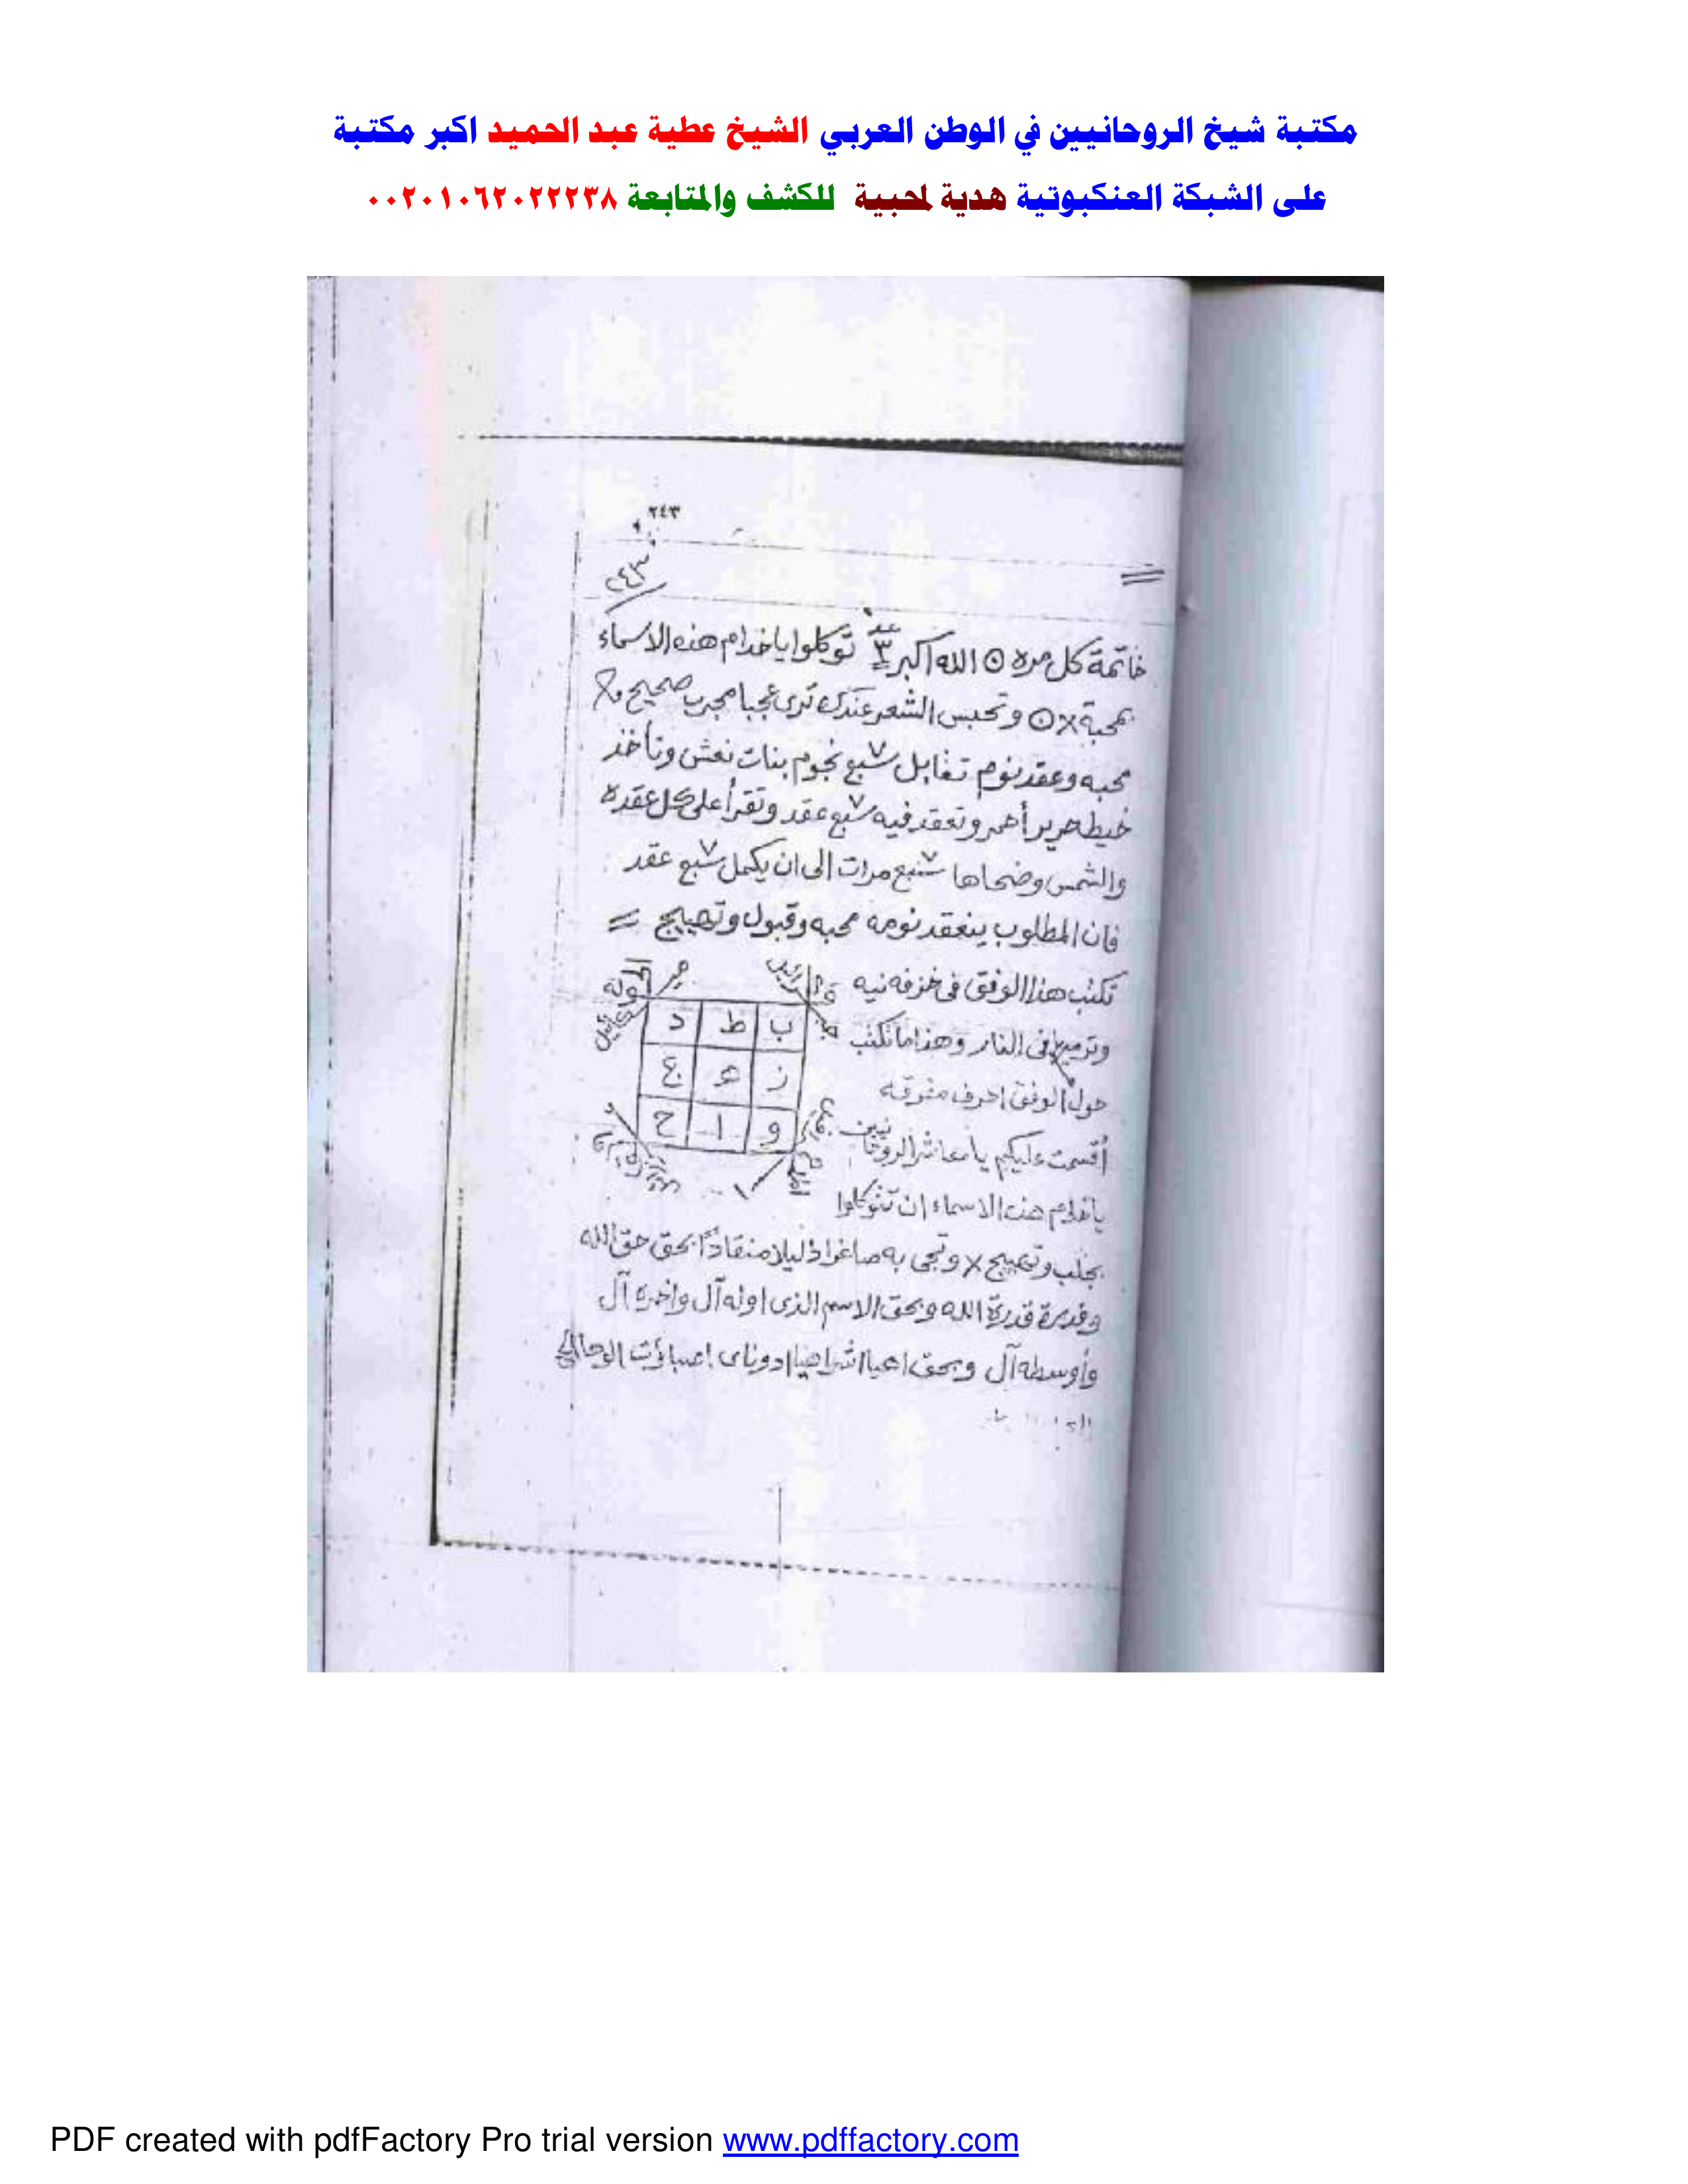 مكتبة شيخ الروحانيين في الوطن العربي الشيخ عطية عبد الحميد اكبر مكتبة
على الشبكة العنكبوتية هدية لمحبية للكشف والمتابعة ٠٠٢٠١٠٦٢٠٢٢٢٣٨
٢٤٣
٢٤٣
خاتمة كل مره ⊙ الله اكبر ٣ توكلوا يا خدام هذه الاسماء
بمحبة × ⊙ وتحبس الشعر عندك ترى عجبا مجرب صحيح
محبه وعقد نوم تقابل سبع ٧ نجوم بنات نعش وتأخذ
خيط حرير أحمر وتعقد فيه سبع ٧ عقد وتقرأ على كل عقده
والشمس وضحاها سبع ٧ مرات الى ان يكمل سبع ٧ عقد
فان المطلوب ينعقد نومه محبه وقبول وتهييج =
تكتب هذا الوفق فى خزفه نيه
وترميها فى النار وهذا ما تكتب
حول الوفق احرف متفرقه
ب ط د
ز هـ ع
و ا ح
أقسمت عليكم يا معاشر الروحانيين
يا خدام هذه الاسماء ان تتوكلوا
بجلب وتهييج × وتجى به صاغرا ذليلا منقادًا بحق حق الله
وقدرة قدرة الله وبحق الاسم الذى اوله آل واخره آل
وأوسطه آل وبحق اهيا اشراهيا ادوناى اصباؤت